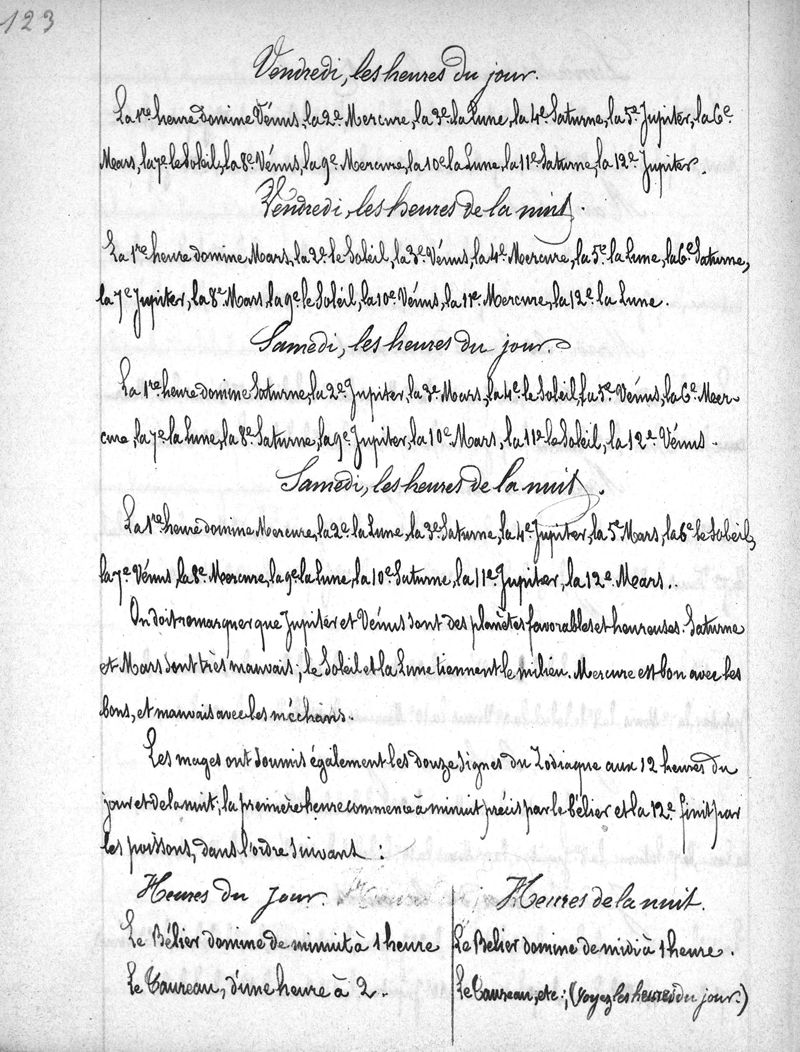 123
Vendredi, les heures du jour.
La 1re heure domine Vénus, la 2e Mercure, la 3e la Lune, la 4e Saturne, la 5e Jupiter, la 6e
Mars, la 7e le Soleil, la 8e Vénus, la 9e Mercure, la 10e la Lune, la 11e Saturne, la 12e Jupiter.
Vendredi, les heures de la nuit.
La 1re heure domine Mars, la 2e le Soleil, la 3e Vénus, la 4e Mercure, la 5e la Lune, la 6e Saturne,
la 7e Jupiter, la 8e Mars, la 9e le Soleil, la 10e Vénus, la 11e Mercure, la 12e la Lune.
Samedi, les heures du jour.
La 1re heure domine Saturne, la 2e Jupiter, la 3e Mars, la 4e le Soleil, la 5e Vénus, la 6e Mer-
cure, la 7e la Lune, la 8e Saturne, la 9e Jupiter, la 10e Mars, la 11e le Soleil, la 12e Vénus.
Samedi, les heures de la nuit.
La 1re heure domine Mercure, la 2e la Lune, la 3e Saturne, la 4e Jupiter, la 5e Mars, la 6e le Soleil,
la 7e Vénus, la 8e Mercure, la 9e la Lune, la 10e Saturne, la 11e Jupiter, la 12e Mars..
On doit remarquer que Jupiter et Vénus sont des planètes favorables et heureuses. Saturne
et Mars sont très mauvais; le Soleil et la Lune tiennent le milieu. Mercure est bon avec les
bons, et mauvais avec les méchans.
Les mages ont soumis également les douze signes du Zodiaque aux 12 heures du
jour et de la nuit; la première heure commence à minuit précis par le bélier et la 12e finit par
les poissons, dans l'ordre suivant :
Heures du jour.
Le Bélier domine de minuit à 1 heure
Le Taureau, d'une heure à 2.
Heures de la nuit.
Le Bélier domine de midi à 1 heure.
Le Taureau, etc.; (voyez les heures du jour.)